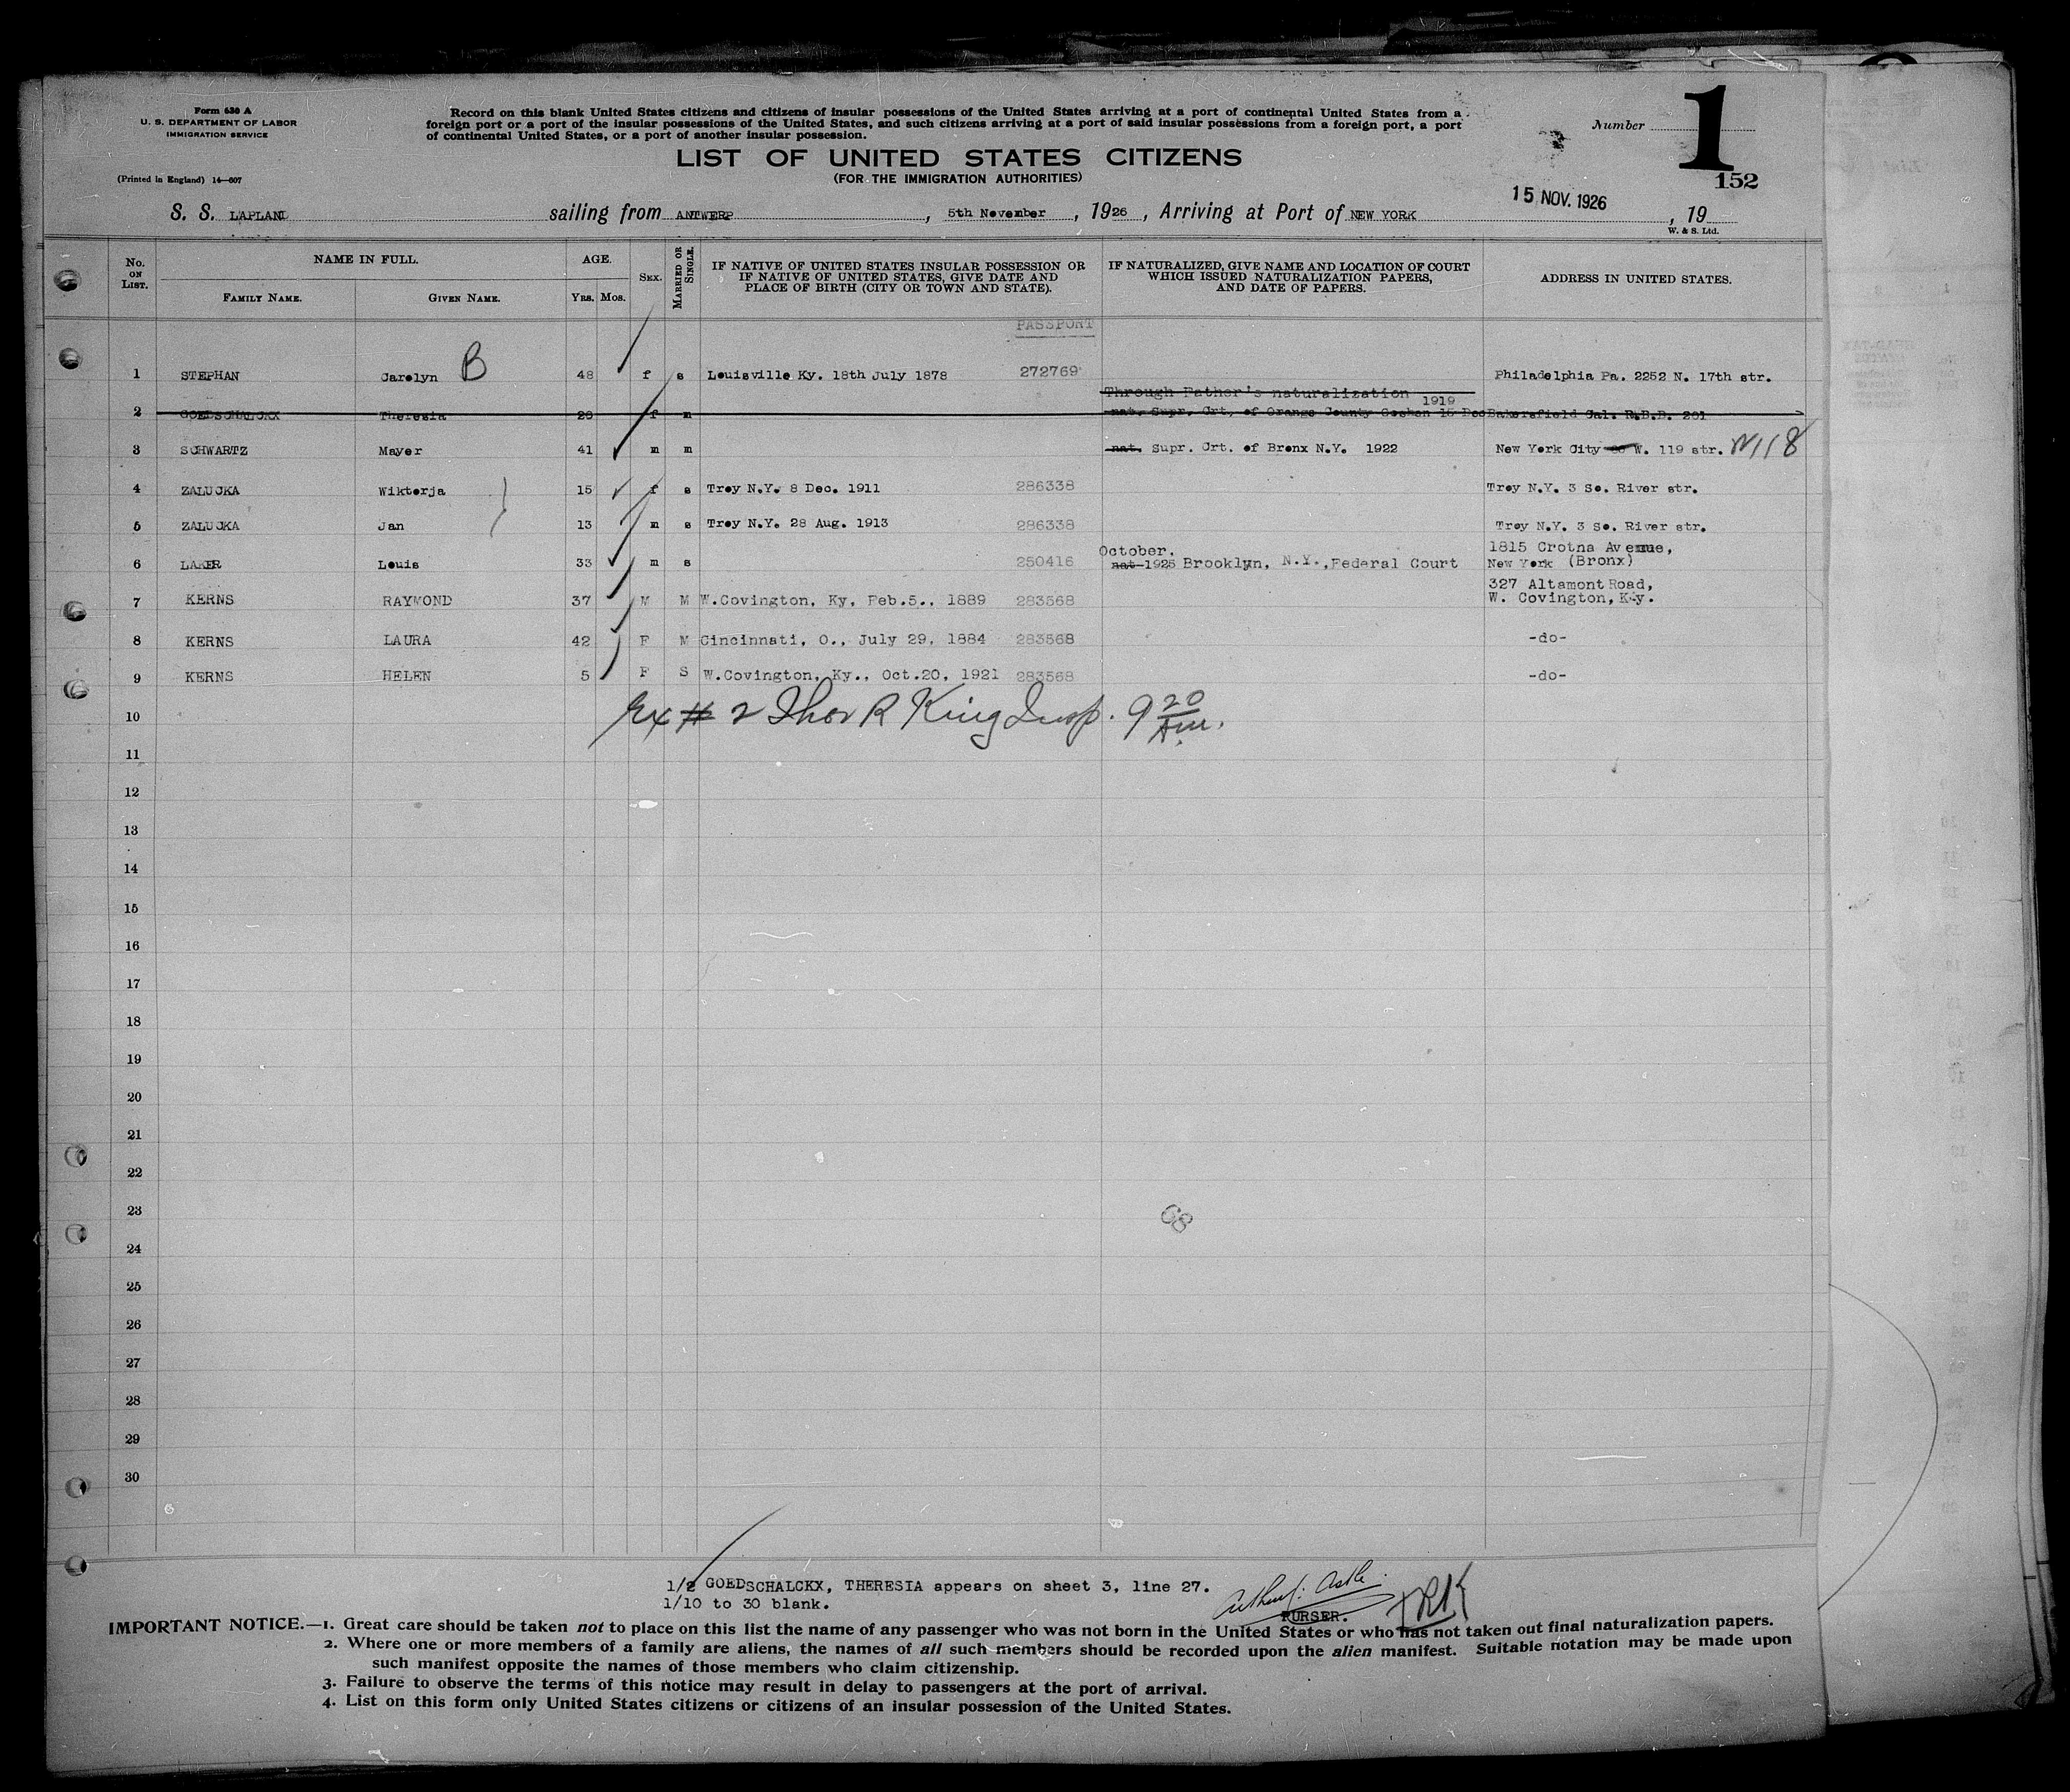 Form 630 A
U. S. DEPARTMENT OF LABOR
IMMIGRATION SERVICE
(Printed in England) 14—607
Record on this blank United States citizens and citizens of insular possessions of the United States arriving at a port of continental United States from a
foreign port or a port of the insular possessions of the United States, and such citizens arriving at a port of said insular possessions from a foreign port, a port
of continental United States, or a port of another insular possession.
Number 1
152
LIST OF UNITED STATES CITIZENS
(FOR THE IMMIGRATION AUTHORITIES)
S. S. LAPLAND sailing from ANTWERP, 5th November, 1926, Arriving at Port of NEW YORK 15 NOV. 1926, 19
W. & S. Ltd.
No. ON LIST. NAME IN FULL. FAMILY NAME. GIVEN NAME. AGE. YRS. MOS. SEX. MARRIED OR SINGLE. IF NATIVE OF UNITED STATES INSULAR POSSESSION OR IF NATIVE OF UNITED STATES, GIVE DATE AND PLACE OF BIRTH (CITY OR TOWN AND STATE). IF NATURALIZED, GIVE NAME AND LOCATION OF COURT WHICH ISSUED NATURALIZATION PAPERS, AND DATE OF PAPERS. ADDRESS IN UNITED STATES.
PASSPORT
1 STEPHAN Carolyn B 48 f s Louisville Ky. 18th July 1878 272769 Philadelphia Pa. 2252 N. 17th str.
Through Father's naturalization 1919
2 GOEDSCHALCKX Theresia 29 f m nat. Supr. Crt. of Orange County Goshen 15 Dec Bakersfield Cal. R.B.D. 201
3 SCHWARTZ Mayer 41 m m nat. Supr. Crt. of Bronx N.Y. 1922 New York City W. 119 str. W118
4 ZALUCKA Wiktorja 15 f s Troy N.Y. 8 Dec. 1911 286338 Troy N.Y. 3 So. River str.
5 ZALUCKA Jan 13 m s Troy N.Y. 28 Aug. 1913 286338 Troy N.Y. 3 So. River str.
October, 1815 Crotna Avenue,
6 LAKER Louis 33 m s 250416 nat 1925 Brooklyn, N.Y., Federal Court New York (Bronx)
327 Altamont Road,
7 KERNS RAYMOND 37 M M W.Covington, Ky, Feb.5., 1889 283568 W. Covington, Ky.
8 KERNS LAURA 42 F M Cincinnati, O., July 29, 1884 283568 -do-
9 KERNS HELEN 5 F S W.Covington, Ky., Oct.20, 1921 283568 -do-
10 Ex # 2 Thos R King Insp. 9 20 Am.
11
12
13
14
15
16
17
18
19
20
21
22
23
68
24
25
26
27
28
29
30
1/2 GOEDSCHALCKX, THERESIA appears on sheet 3, line 27.
1/10 to 30 blank.
PURSER. TRK
IMPORTANT NOTICE.—1. Great care should be taken not to place on this list the name of any passenger who was not born in the United States or who has not taken out final naturalization papers.
2. Where one or more members of a family are aliens, the names of all such members should be recorded upon the alien manifest. Suitable notation may be made upon
such manifest opposite the names of those members who claim citizenship.
3. Failure to observe the terms of this notice may result in delay to passengers at the port of arrival.
4. List on this form only United States citizens or citizens of an insular possession of the United States.